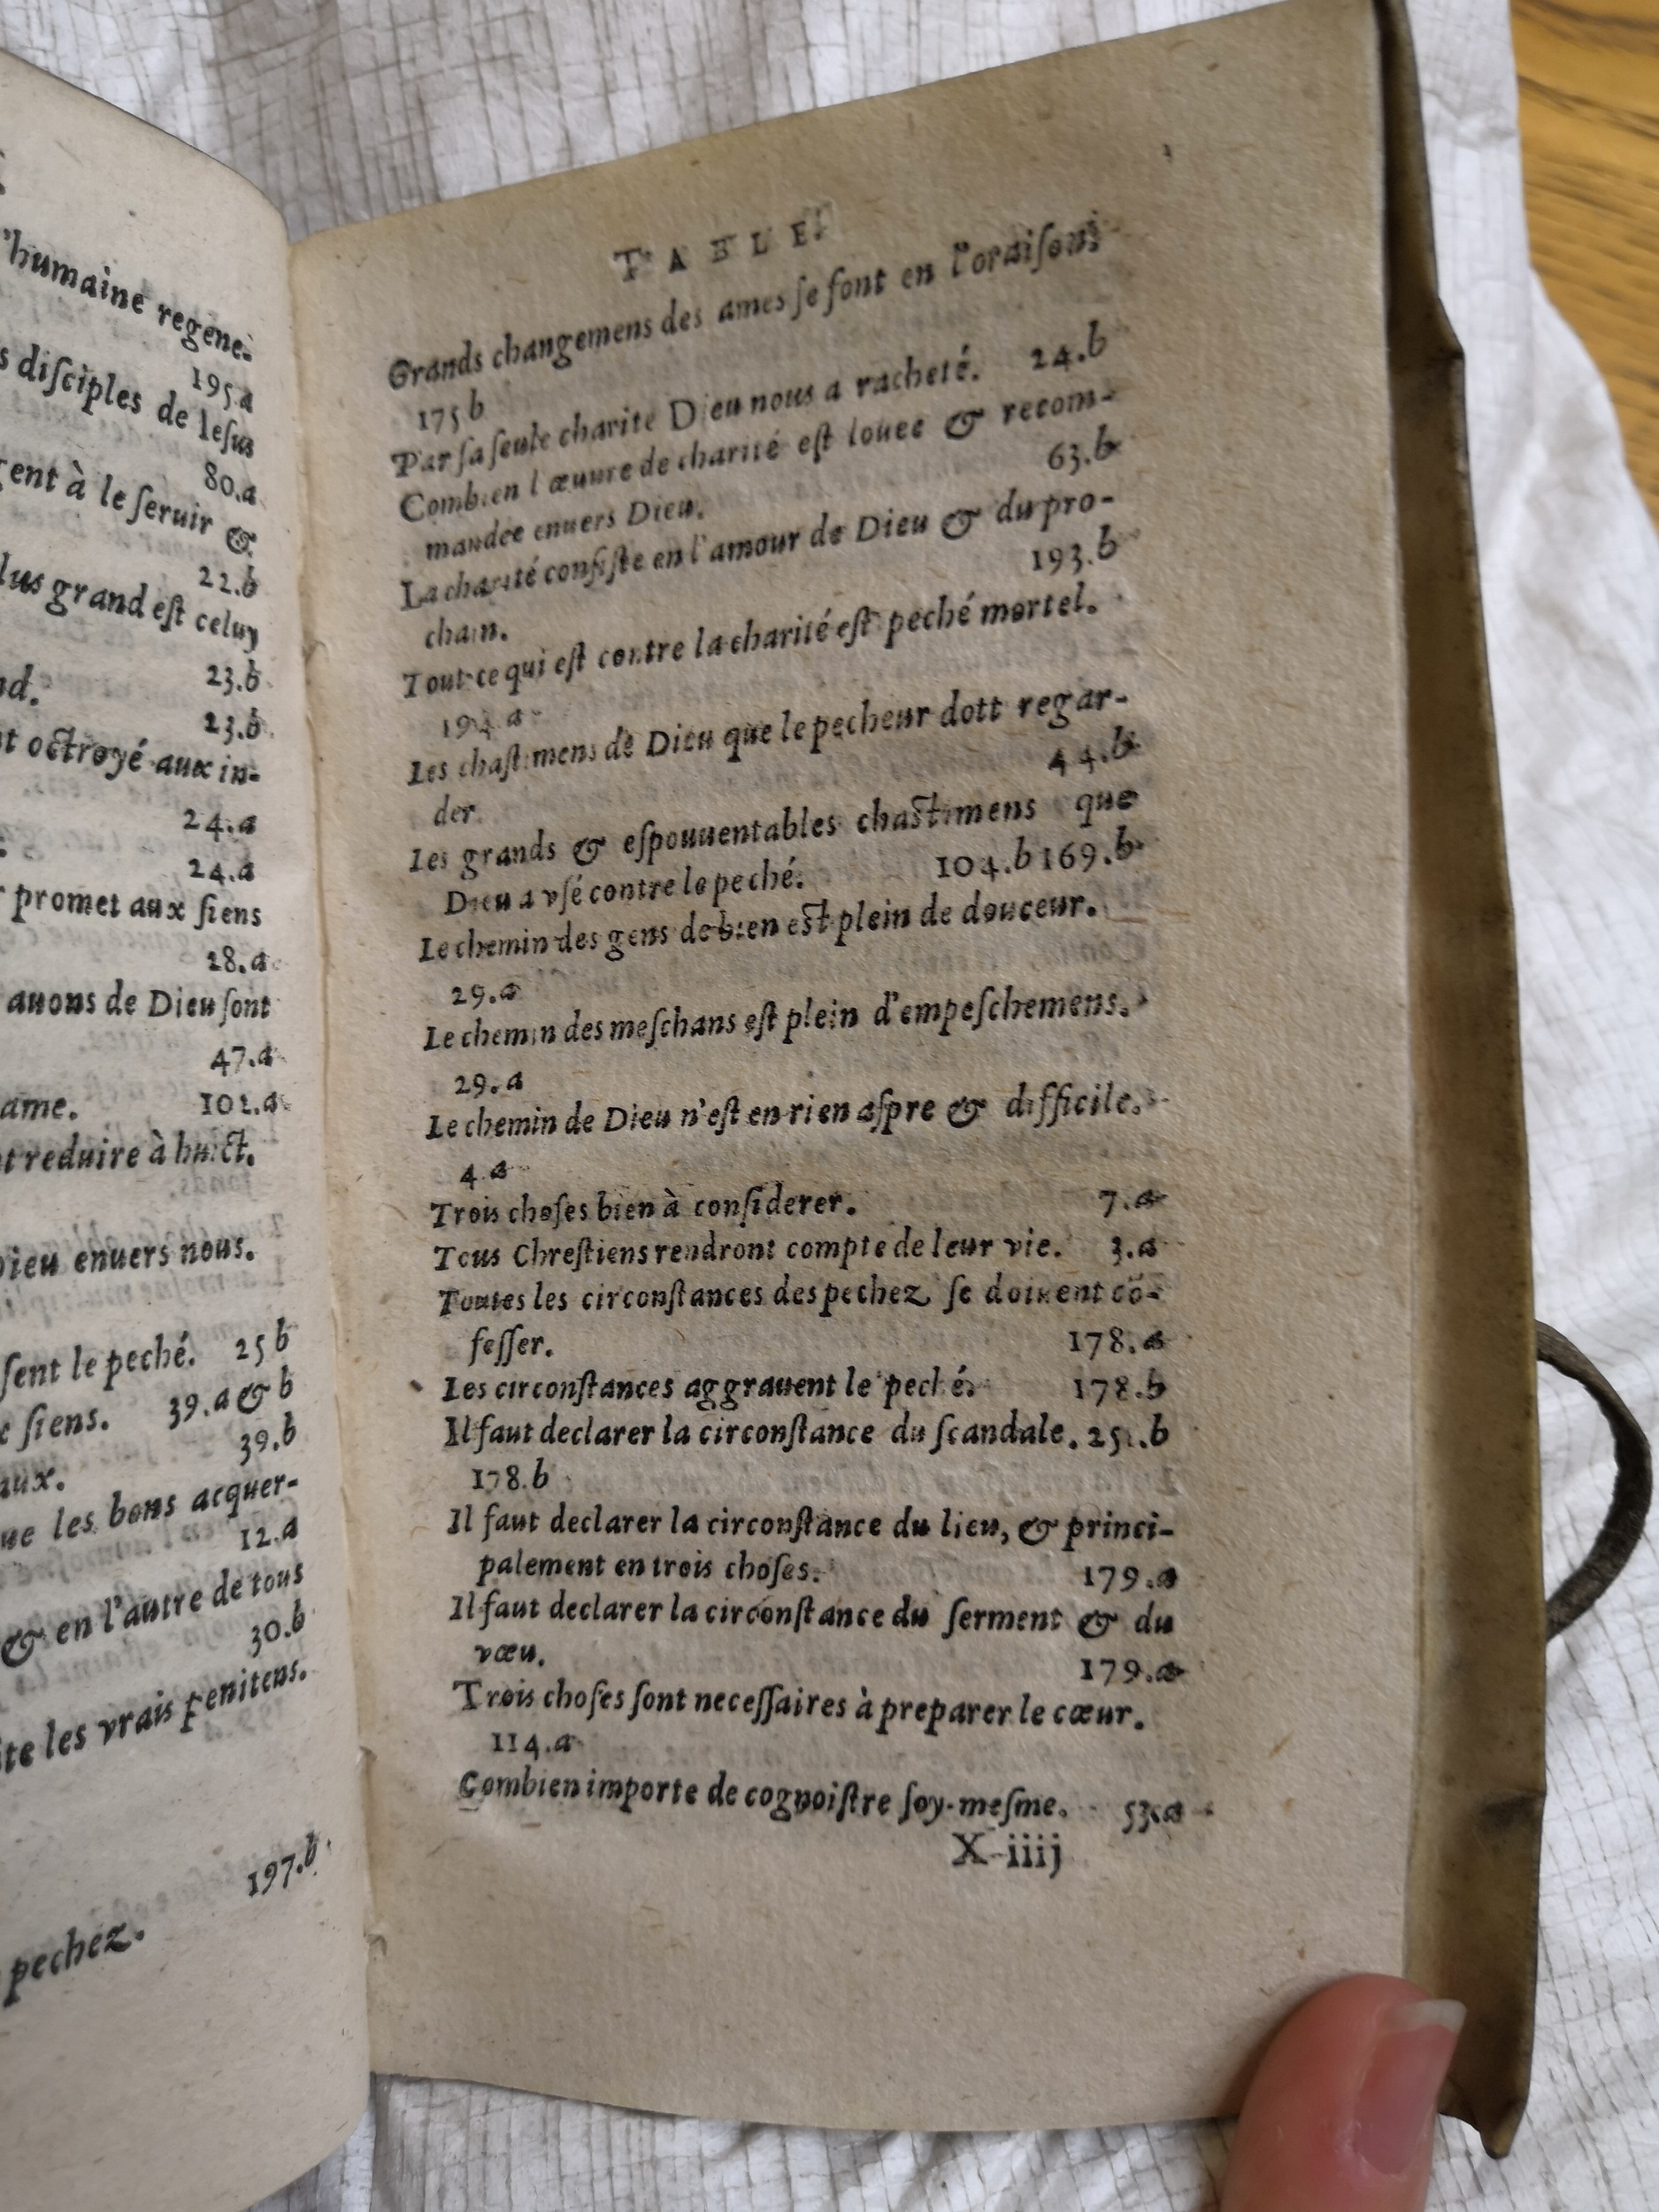 'humaine regene-
195.a
s diſciples de Ieſus
80.a
gent à le ſeruir &
22.b
lus grand eſt celuy
23.b
nd.
23.b
nt octroyé aux in-
24.a
24.a
r promet aux ſiens
28.a
auons de Dieu ſont
47.a
ame. 101.a
nt reduire à huict.
Dieu enuers nous.
ſent le peché. 25 b
x ſiens. 39.a & b
39.b
aux.
ue les bons acquer-
12.a
& en l'autre de tous
30.b
ite les vrais penitens.
197.b
pechez.
TABLE
Grands changemens des ames ſe font en l'oraiſon:
175 b
Par ſa ſeule charite Dieu nous a racheté. 24.b
Combien l œuure de charité eſt louee & recom-
mandee enuers Dieu. 63.b
La charité conſiſte en l'amour de Dieu & du pro-
chain. 193.b
Tout ce qui eſt contre la charité eſt peché mortel.
194 a
Les chaſtimens de Dieu que le pecheur dott regar-
der. 44.b
Les grands & eſpouuentables chaſtimens que
Dieu a vſé contre le peché. 104.b 169.b
Le chemin des gens de bien eſt plein de douceur.
29.a
Le chemin des meſchans eſt plein d'empeſchemens.
29.a
Le chemin de Dieu n'eſt en rien aſpre & difficile.
4 a
Trois choſes bien à conſiderer. 7.a
Tous Chreſtiens rendront compte de leur vie. 3.a
Toutes les circonſtances des pechez ſe doiuent cõ-
feſſer. 178.a
Les circonſtances aggrauent le peché. 178.b
Il faut declarer la circonſtance du ſcandale.
178.b
Il faut declarer la circonſtance du lieu, & princi-
palement en trois choſes. 179.a
Il faut declarer la circonſtance du ſerment & du
vœu. 179.a
Trois choſes ſont neceſſaires à preparer le cœur.
114.a
Combien importe de cognoiſtre ſoy-meſme. 53.a
X iiij